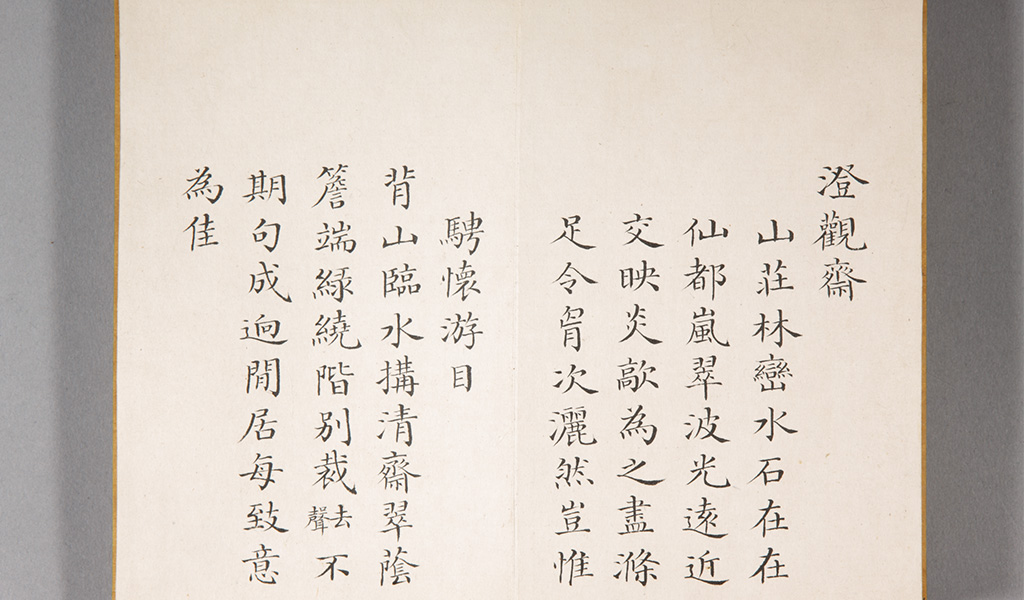 澄觀齋
山莊林巒水石在在
仙都嵐翠波光遠近
交映炎歊為之盡滌
足令胷次灑然豈惟
騁懷游目
背山臨水搆清齋翠蔭
簷端綠繞階別裁去聲不
期句成逈閒居每致意
為佳